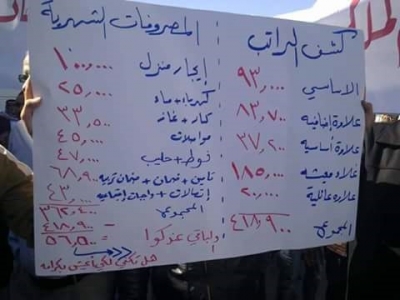 كشف الراتب
الاساسي ٩٣,٠٠٠
علاوة إضافية ٨٣,٧٠٠
علاوة أساسية ٣٧,٢٠٠
غلاء معيشة ١٨٥,٠٠٠
علاوة عائلية ٢٠,٠٠٠
المجموع ٤١٨,٩٠٠
المصروفات الشهرية
إيجار منزل ١٠٠,٠٠٠
كهرباء + ماء ٢٥,٠٠٠
كاز + غاز ٣٣,٥٠٠
مواصلات ٤٥,٠٠٠
فوط + حليب ٤٧,٠٠٠
تامين + ضمان + ضمان تربية ٦٨,٩٠٠
إتصالات + واجبات إجتماعية ٤٣,٠٠٠
المجموع ٣٦٢,٤٠٠
٤١٨,٩٠٠
والباقي عندكوا ٥٦,٥٠٠
هل تكفي لكي نعيش بكرامه